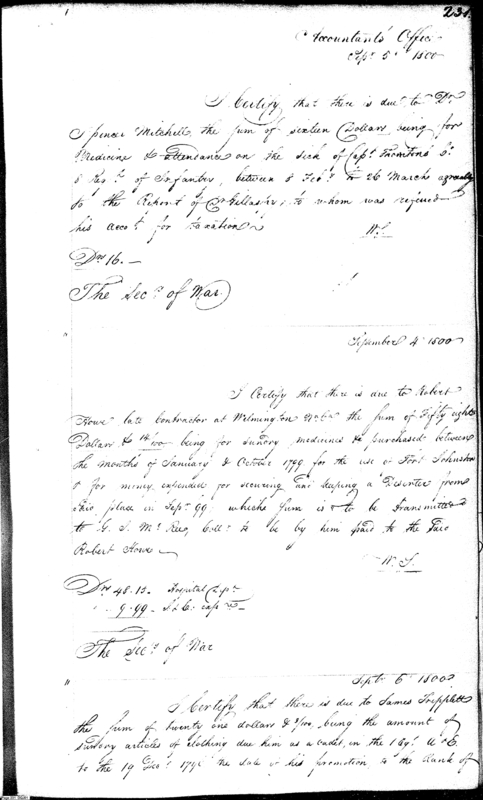 231
Accountants Office
Sepr. 5. 1800
I Certify that there is due to Dr
Spencer Mitchell the sum of sixteen Dollars being for
Medicine & attendance on the sick of Capt. Thomtons Co.
Regt. of Infantry, between 8 Feby. to 26 March agreeably
to the Report of Gillasby to whom was refered
his accot. for taxation
W. S.
Drs 16. —
The Secy. of War
September 4 1800
I Certify that there is due to Robert
Howe late contractor at Wilmington the sum of Fifty eight
Dollars & 14/100 being for sundry medicines &c purchased between
the months of January & October 1799 for the use of Fort Johnston
& for money expended for securing and keeping a Deserter from
this place in Sept. 99 which sum is to be transmitted
to G. J. McRee, Collr. to be by him paid to the said
Robert Howe
W. S.
Drs 48.15. Hospital Dept.
9.99
The Secy. of War
Sept. 6 1800
I Certify that there is due to James Tripplett
the sum of twenty one dollars & /100, being the amount of
sundry articles of clothing due him as a cadet, in the 1 Regt.
to the 19 Decr. the date of his promotion to the Rank of